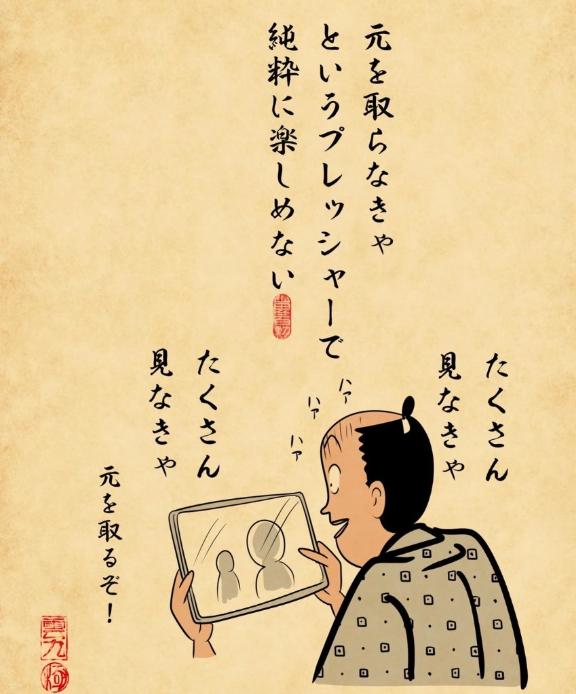 元を取らなきゃ
というプレッシャーで
純粋に楽しめない
たくさん
見なきゃ
ハァ
ハァ
ハァ
たくさん
見なきゃ
元を取るぞ！